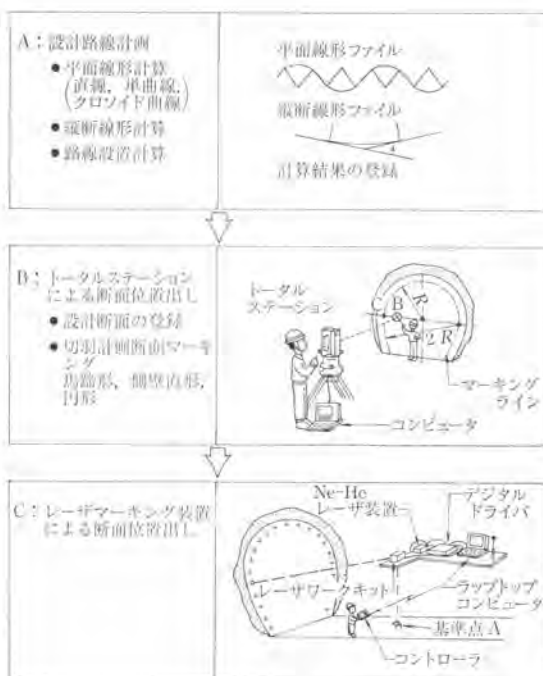 A：設計路線計画
●平面線形計算
(直線，単曲線，
クロソイド曲線)
●縦断線形計算
●路線設置計算
平面線形ファイル
縦断線形ファイル
計算結果の登録
B：トータルステーション
による断面位置出し
●設計断面の登録
●切羽計画断面マーキ
ング
馬蹄形，側壁直形，
円形
トータル
ステーション
C
B
R
2R
マーキング
ライン
コンピュータ
C：レーザマーキング装置
による断面位置出し
Ne-He
レーザ装置
デジタル
ドライバ
レーザワークキット
ラップトップ
コンピュータ
基準点A
コントローラ